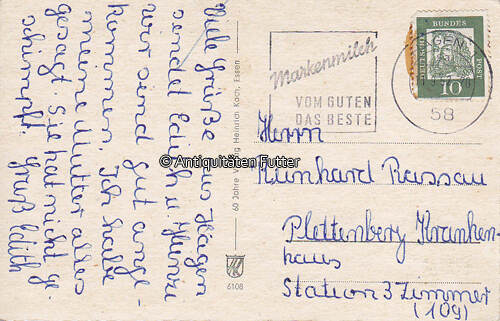 Viele Grüße aus Hagen
sendet Edith u. Heinz
wir sind gut ange-
kommen. Ich habe
meine Mutter alles
gesagt Sie hat nicht ge-
schimpft. Gruß Edith
60 Jahre Verlag Heinrich Koch, Essen
6108
© Antiquitäten Futter
Markenmilch
VOM GUTEN
DAS BESTE
58
DEUTSCHE
BUNDES
POST
10
Herrn
Reinhard Rassau
Plettenberg Kranken-
haus
Station 3 Zimmer
(109)